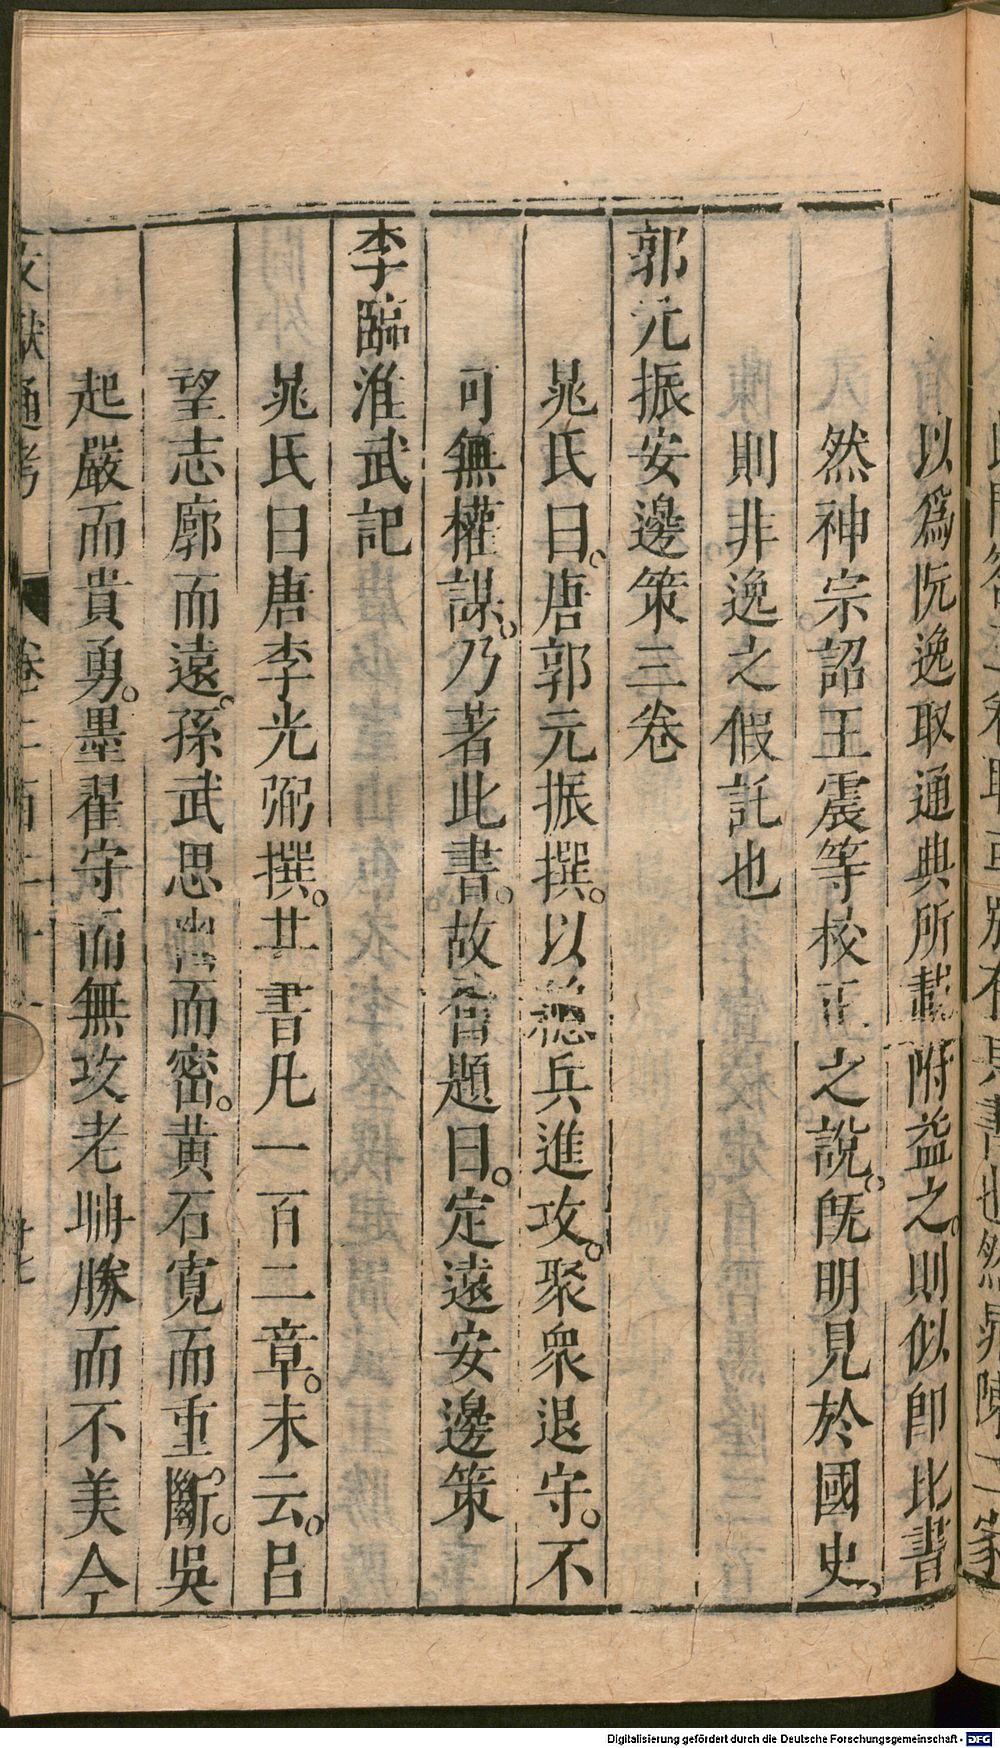 以爲阮逸取通典所載附益之。則似即此書
然神宗詔王震等校正之說。旣明見於國史。
則非逸之假託也
郭元振安邊策三卷
晁氏曰。唐郭元振撰。以總兵進攻。聚衆退守。不
可無權謀。乃著此書。故舊題曰。定遠安邊策
李臨淮武記
晁氏曰唐李光弼撰。其書凡一百二章。末云。呂
望志廓而遠。孫武思幽而密。黃石寛而重斷。吳
起嚴而貴勇。墨翟守而無攻老聃勝而不美今
文獻通考
Digitalisierung gefördert durch die Deutsche Forschungsgemeinschaft - DFG